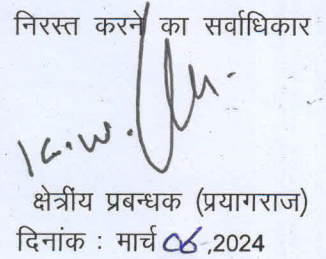 निरस्त करने का सर्वाधिकार
क्षेत्रीय प्रबन्धक (प्रयागराज)
दिनांक : मार्च 06,2024